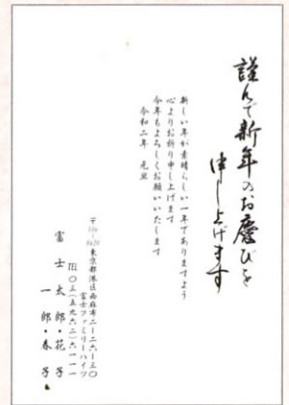 謹んで新年のお慶びを
申し上げます
新しい年が素晴らしい一年でありますよう
心よりお祈り申し上げます
今年もよろしくお願いいたします
令和二年 元旦
〒106-
東京都港区西麻布二ー二六ー三〇
富士ファミリーハイツ
TEL〇三(五九六二)六一一一
富士太郎・花子
一郎・春子